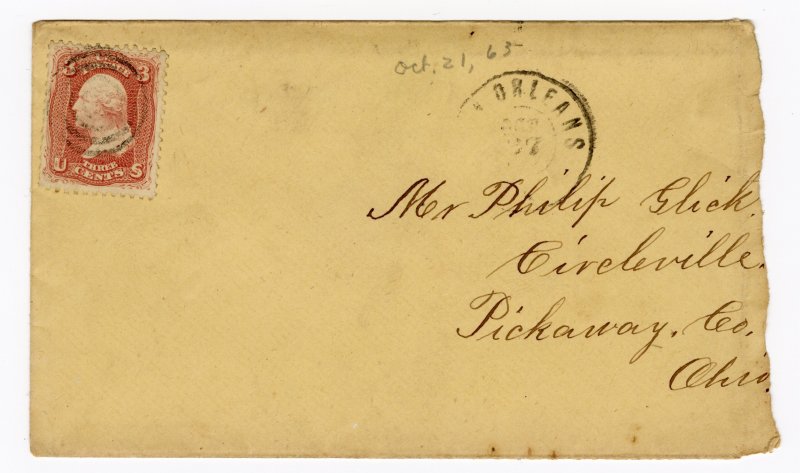 3 3
U THREE S
CENTS
Oct. 21, 65
ORLEANS
27
Mr Philip Glick.
Circleville.
Pickaway. Co.
Ohio.